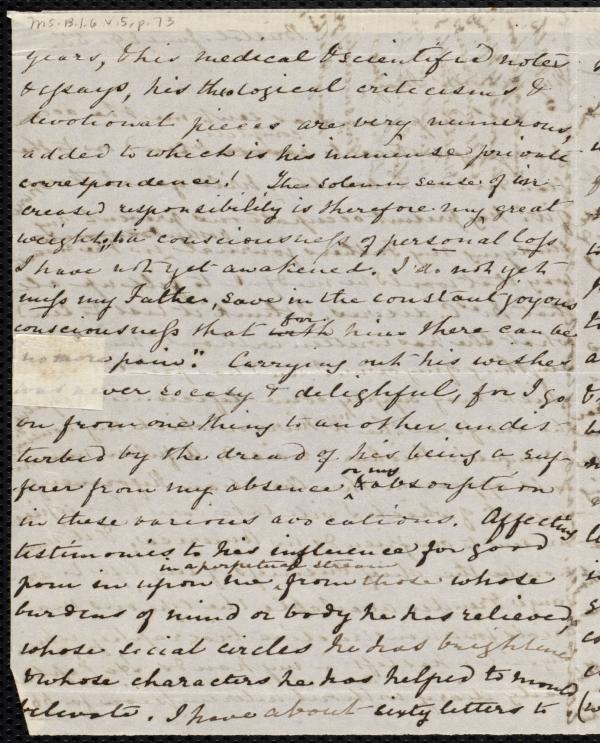 MS. B.1.6 v.5, p. 73
years, & his medical & scientific notes
& essays, his theological criticisms &
devotional pieces are very numerous,
added to which is his immense private
correspondence! The solemn sense of in-
creased responsibility is therefore my great
weight; to a consciousness of personal loss
I have not yet awakened. I do not yet
miss my Father, save in the constant joyous
consciousness that for him there can be
"no more pain". Carrying out his wishes
was never so easy & delightful, for I go
on from one thing to another undis-
turbed by the dread of his being a suf-
ferer from my absence or my absorption
in these various avocations. Affecting
testimonies to his influence for good
pour in upon me in a perpetual stream from those whose
burdens of mind or body he has relieved,
whose social circles he has brightened
& whose characters he has helped to mould
& elevate. I have about sixty letters to